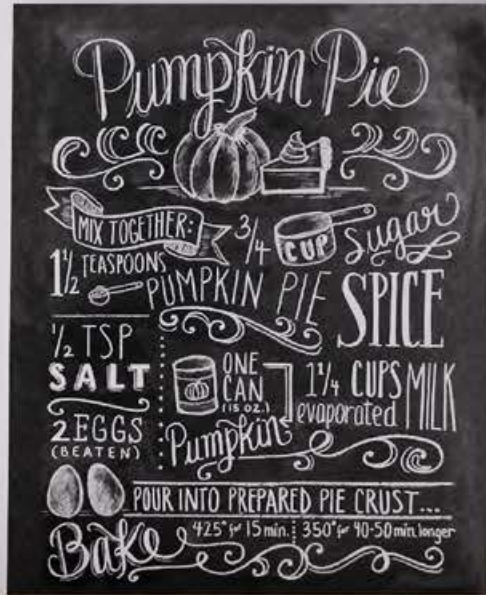 Pumpkin Pie
MIX TOGETHER:
3/4 CUP Sugar
1 1/2 TEASPOONS
PUMPKIN PIE SPICE
1/2 TSP
SALT
2 EGGS
(BEATEN)
ONE
CAN
(15 OZ.)
Pumpkin
1 1/4 CUPS
evaporated MILK
POUR INTO PREPARED PIE CRUST...
Bake 425° for 15 min. 350° for 40-50 min. longer